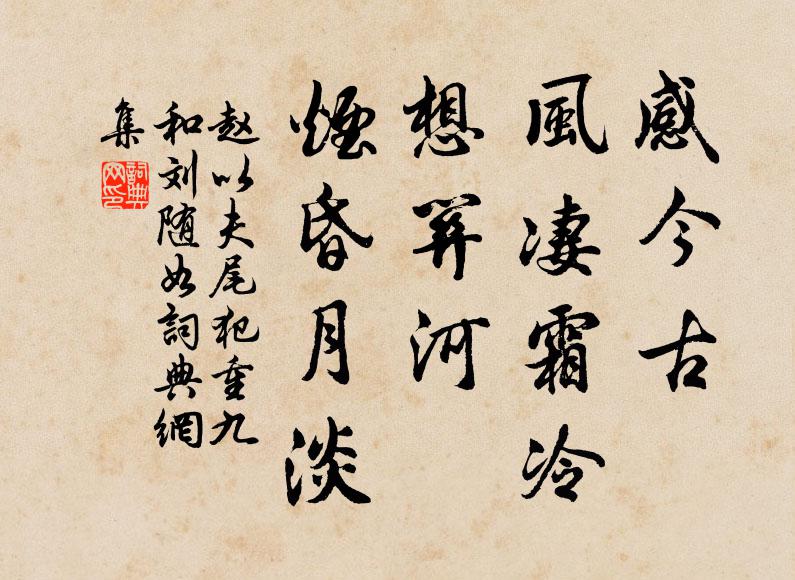 感今古
風凄霜冷
想關河
煙昏月淡
赵以夫尾犯重九
和刘随如詞典網
集
詞典
网印